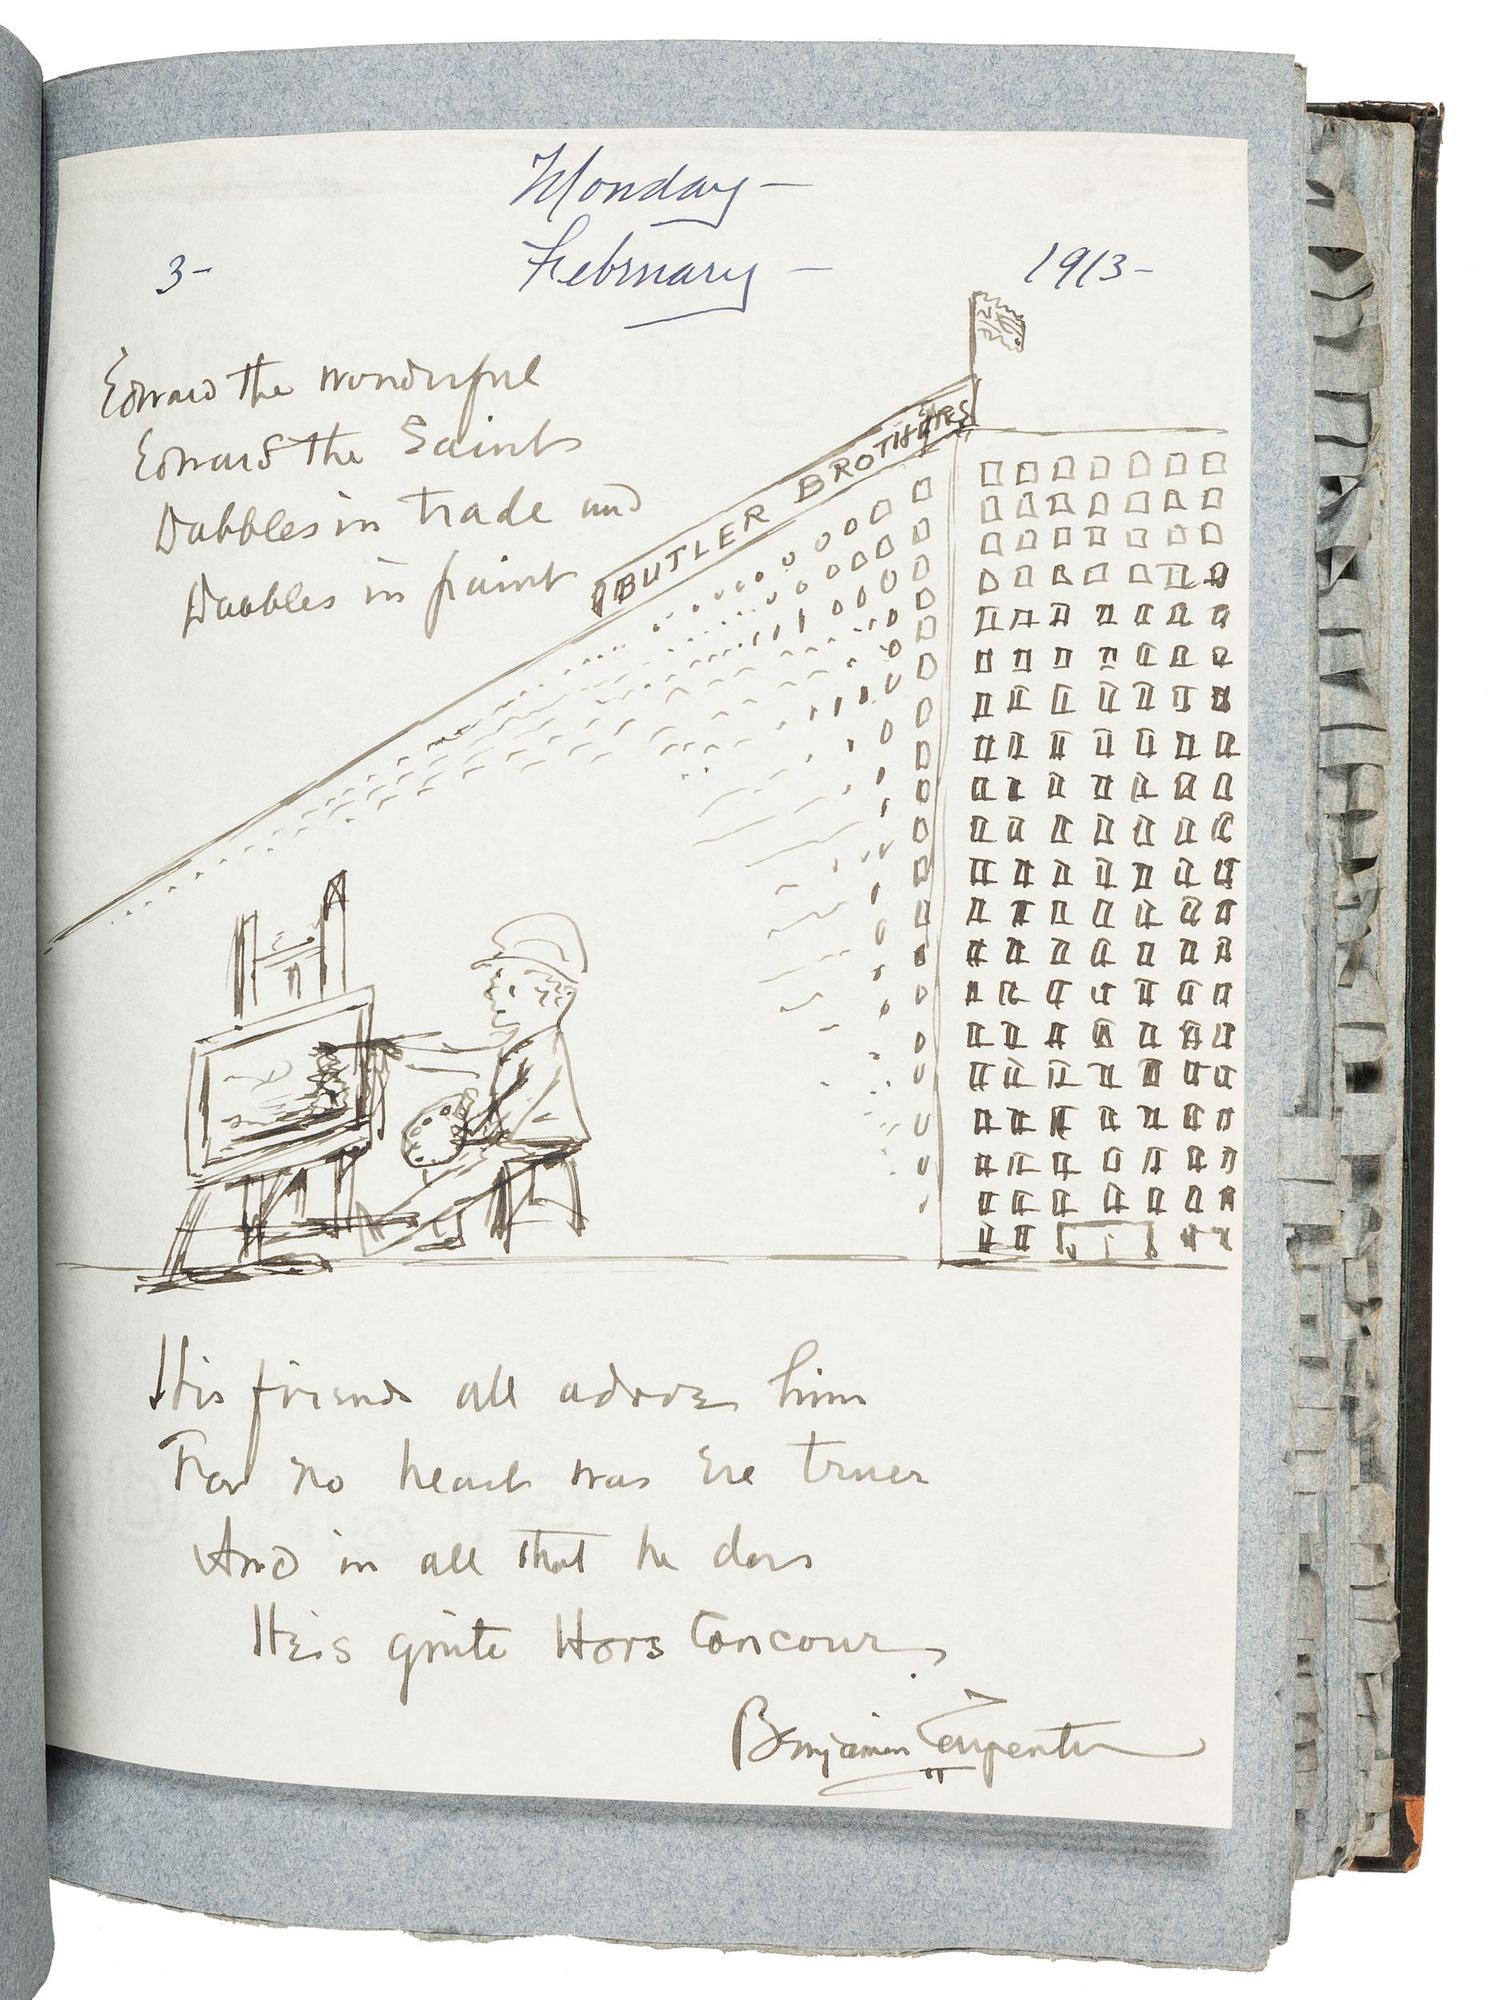 Monday —
3- February — 1913-
Edward the wonderful
Edward the Saint
Dabbles in trade and
Daubles in paint
BUTLER BROTHERS
His friends all adore him
For no heart was ere truer
And in all that he does
He is quite Hors Concour
Benjamin Carpenter